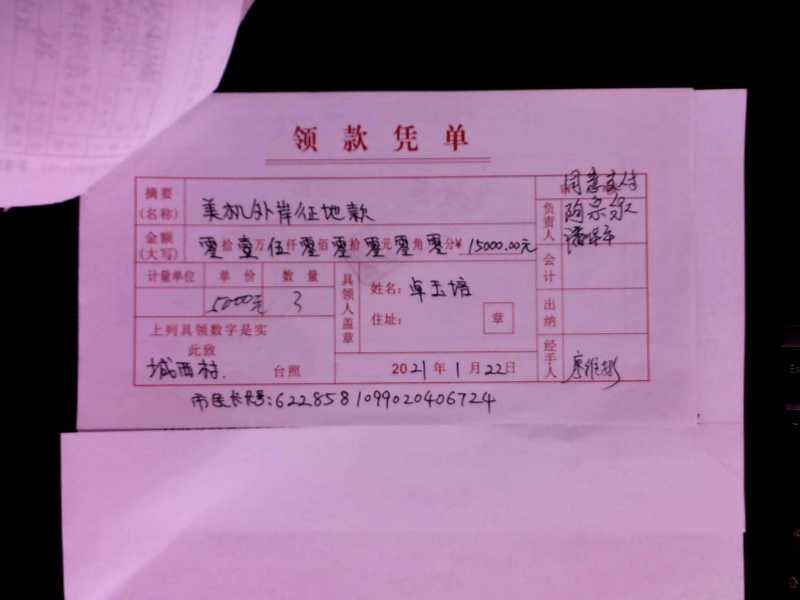 领款凭单
摘要(名称) 美机外岸征地款
金额(大写) 零拾壹万伍仟零佰零拾零元零角零分¥ 15000.00元
计量单位 单价 数量
5000元 3
上列具领数字是实
此致
城西村 台照
具领人盖章
姓名: 卓玉培
住址: 章
2021年1月22日
同意支付
负责人
会计
出纳
经手人 廖维彬
市民卡号:6228581099020406724